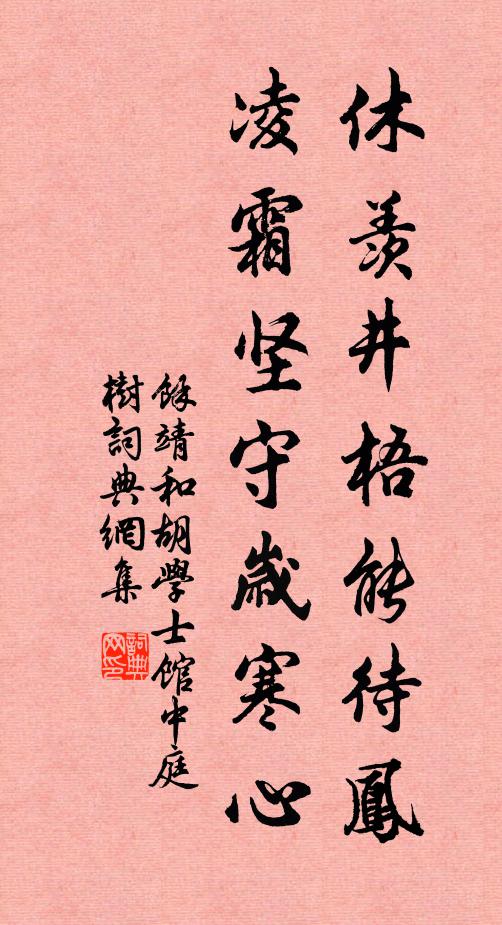 休羨井梧能待鳳
凌霜坚守歲寒心
餘靖和胡學士館中庭
樹詞典網集
詞典网印